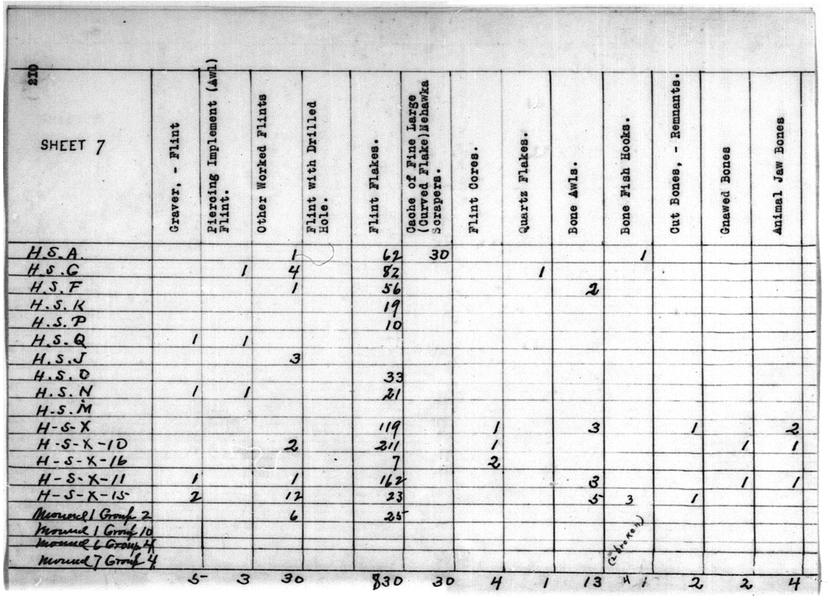 210
SHEET 7 Graver, - Flint Piercing Implement (Awl) Flint. Other Worked Flints Flint with Drilled Hole. Flint Flakes. Cache of Fine Large (Curved Flake) Nehawka Scrapers. Flint Cores. Quartz Flakes. Bone Awls. Bone Fish Hooks. Cut Bones, - Remnants. Gnawed Bones Animal Jaw Bones
H.S.A. 1 62 30 1
H.S.G 1 4 82 1
H.S.F 1 56 2
H.S.K 19
H.S.P 10
H.S.Q 1 1
H.S.J 3
H.S.O 33
H.S.N 1 1 21
H.S.M
H-S-X 119 1 3 1 2
H-S-X-10 2 211 1 1 1
H-S-X-16 7 2
H-S-X-11 1 1 162 3 1 1
H-S-X-15 2 12 23 5 3 1
Mound 1 Group 2 6 25
Mound 1 Group 10
Mound 6 Group 4
Mound 7 Group 4 (2 - broken)
5 3 30 830 30 4 1 13 4 1 2 2 4